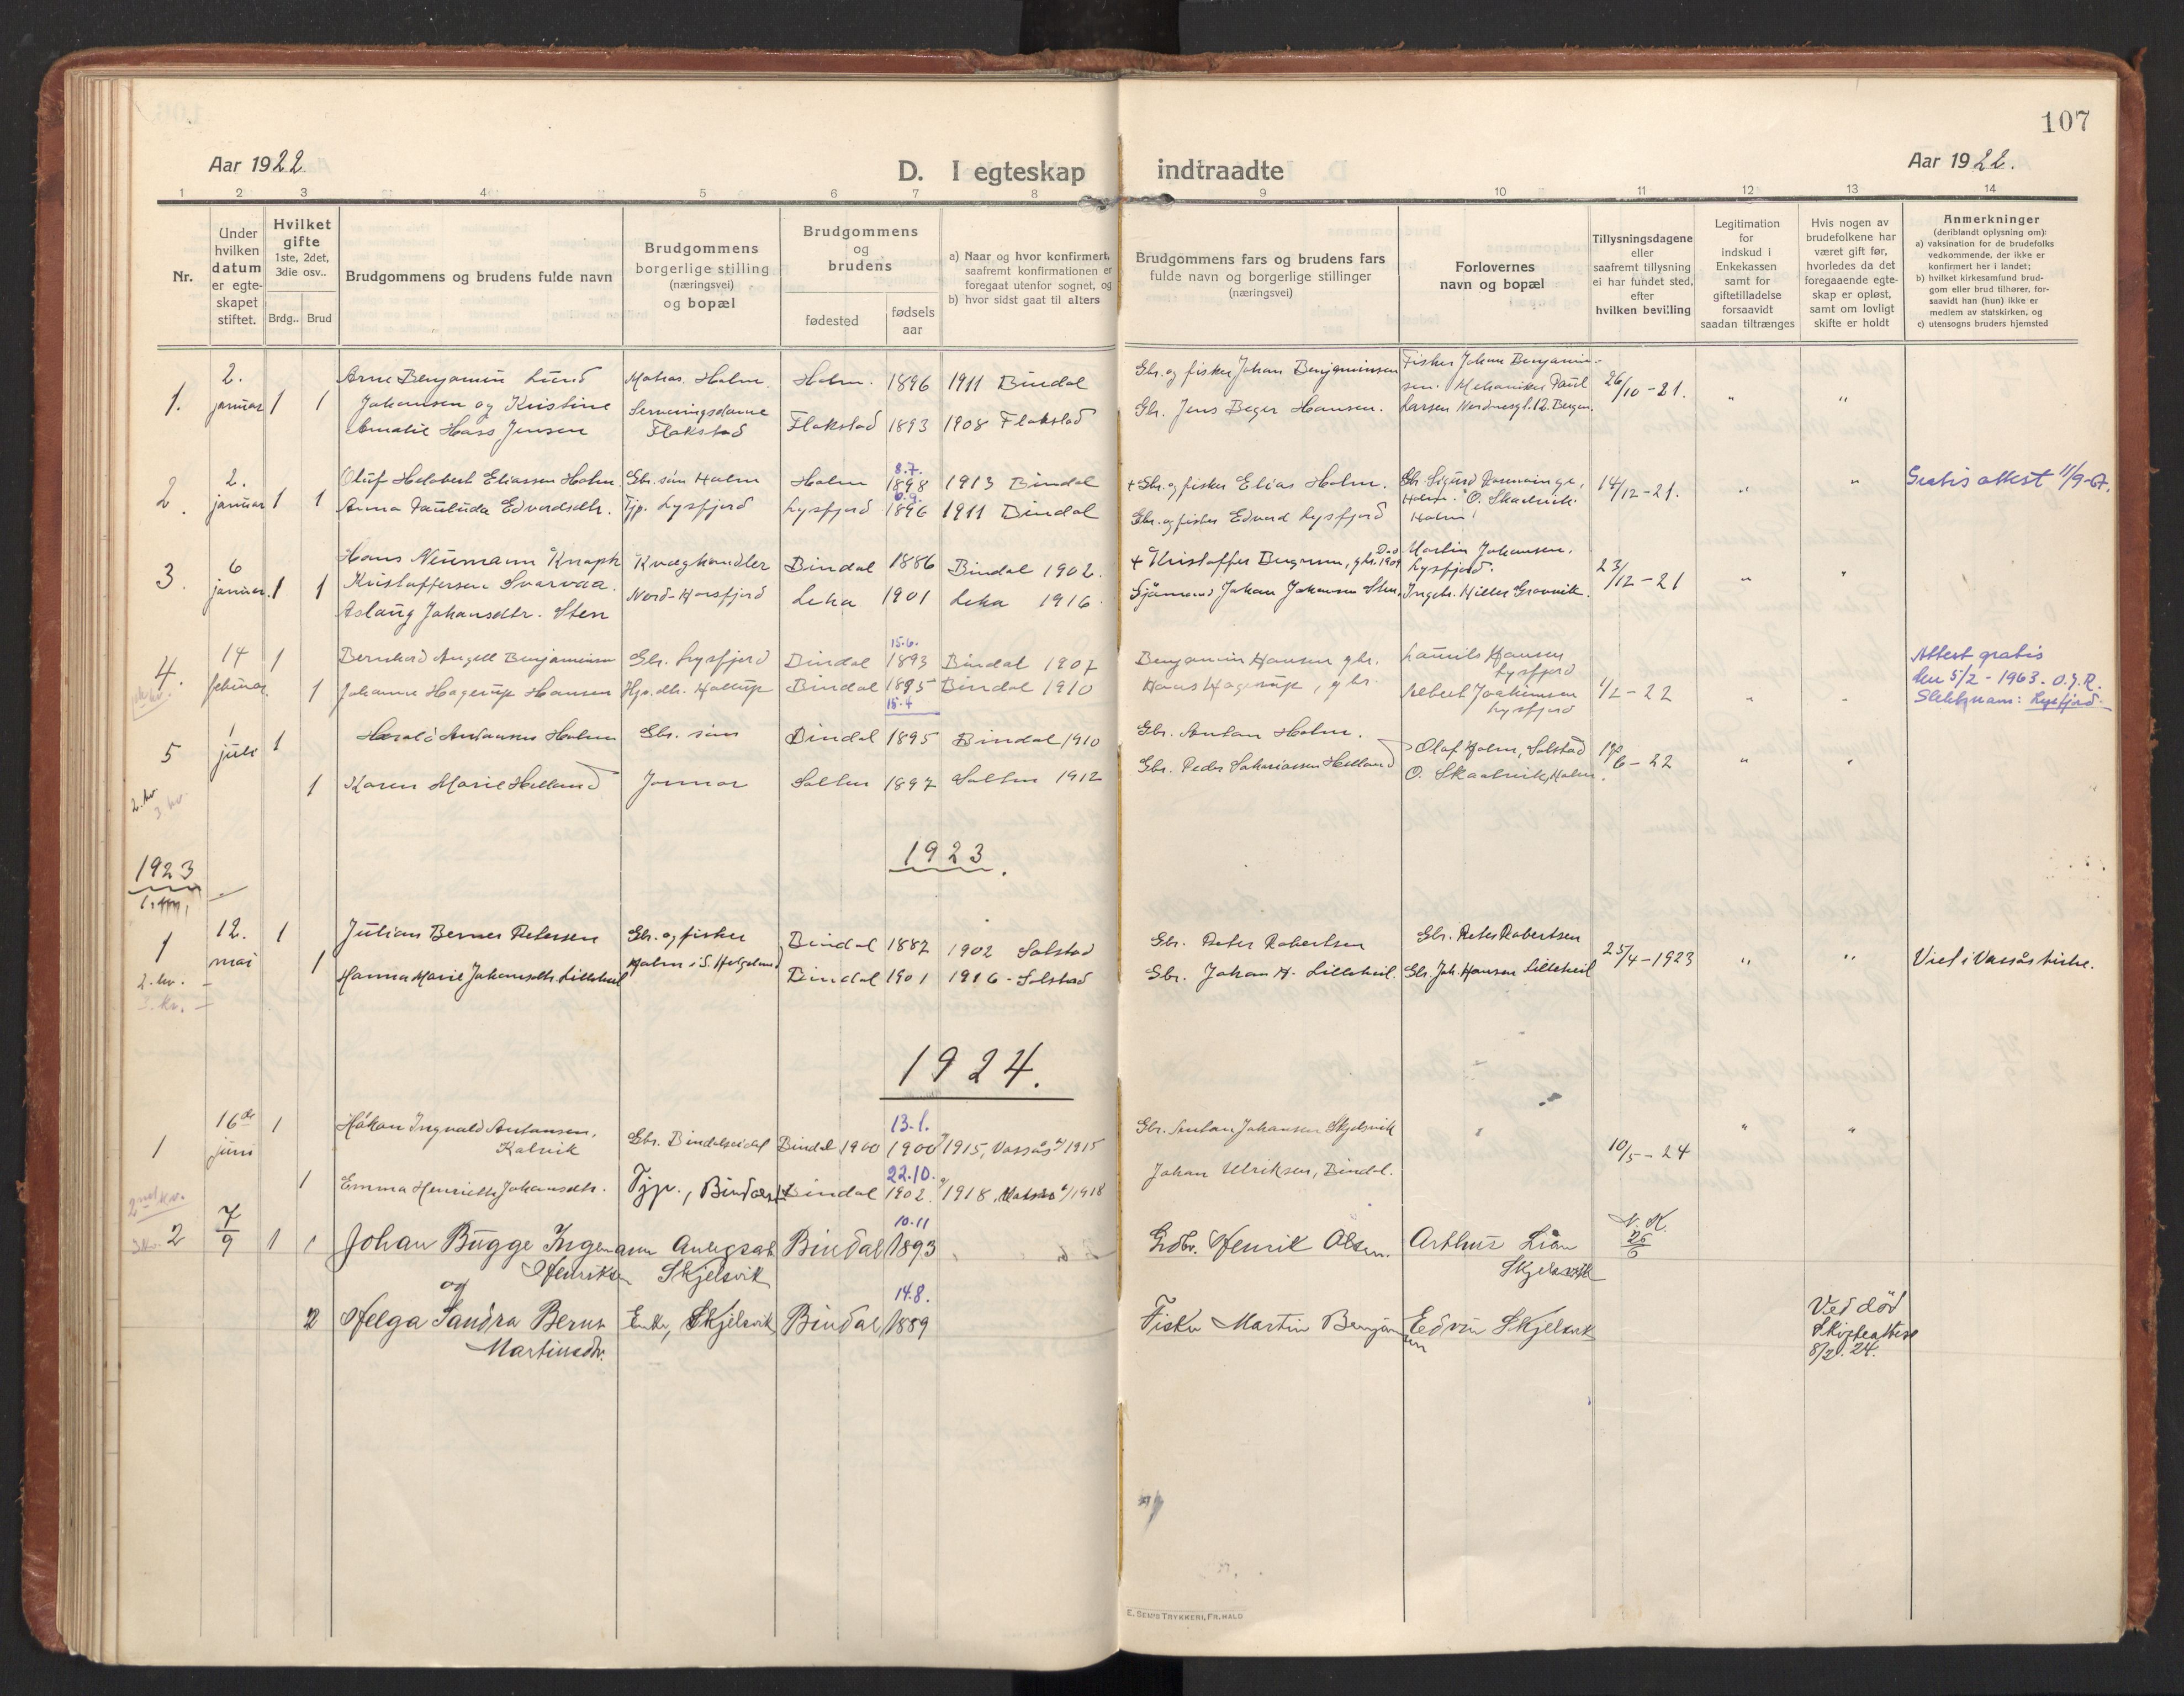 107
Aar 1922
D. I egteskap indtraadte
Aar 1922.
1 2 3 4 5 6 7 8 9 10 11 12 13 14
Nr.
Under hvilken datum er egteskapet stiftet.
Hvilket gifte 1ste, 2det, 3die osv..
Brdg.. Brud
Brudgommens og brudens fulde navn
Brudgommens borgerlige stilling (næringsvei) og bopæl
Brudgommens og brudens
fødested
fødsels aar
a) Naar og hvor konfirmert, saafremt konfirmationen er foregaat utenfor sognet, og
b) hvor sidst gaat til alters
Brudgommens fars og brudens fars fulde navn og borgerlige stillinger (næringsvei)
Forlovernes navn og bopæl
Tillysningsdagene eller saafremt tillysning ei har fundet sted, efter hvilken bevilling
Legitimation for indskud i Enkekassen samt for giftetilladelse forsaavidt saadan tiltrænges
Hvis nogen av brudefolkene har været gift før, hvorledes da det foregaaende egteskap er opløst, samt om lovligt skifte er holdt
Anmerkninger (deriblandt oplysning om):
a) vaksination for de brudefolks vedkommende, der ikke er konfirmert her i landet;
b) hvilket kirkesamfund brudgom eller brud tilhører, forsaavidt han (hun) ikke er medlem av statskirken, og
c) utensogns bruders hjemsted
1. 2. januar 1 1
Arne Benjamin Lund
Johansen og Kristine
Amalie Hass Jensen
Matros. Holm.
Serveringsdame
Flakstad
Holm. 1896 1911 Bindal
Flakstad 1893 1908 Flakstad
Gbr. og fisker Johan Benjaminsen
Gbr. Jens Beger Hansen.
Fisker Johan Benjamin-
sen. Mekaniker Paul
Larsen Nordnesgt. 12. Bergen.
26/10-21. " "
2. 2. januar 1 1
Oluf Helbert Eliassen Holm.
Anna Pauluda Edvardsdtr.
Gbr. søn Holm
Tjp. Lysfjord
Holm 8.7. 1898 1913 Bindal
Lysfjord 6.9. 1896 1911 Bindal
+ Gbr. og fisker Elias Holm.
Gbr. og fisker Edvard Lysfjord
Gbr. Sigurd
Holm. O. Skaalvik
Holm!
14/12-21. " "
Gratis attest 11/9-67.
3. 6 januar. 1 1
Hans Neumann Knoph
Kristoffersen Svarvaa.
Aslaug Johansdtr. Sten
Kvæghandler
Nord-Horsfjord
Bindal 1886 Bindal 1902.
Leka 1901 Leka 1916.
+ Kristoffer gbr.
Sjømand Johan Johansen Sten.
Martin Johansen.
Lysfjord.
Ingebr. Hiller Gravvik.
23/12-21 " "
4. 14 februar. 1 1
Bernhard Angell Benjaminsen
Johanna Hagerup Hansen
Gbr. Lysfjord
Bindal 15.6. 1893 Bindal 1907
Bindal 1895 15.4 Bindal 1910
Benjamin Hansen gbr.
Hans Hagerup, gbr.
Laurits Hansen
Lysfjord
Albert Joakimsen
Lysfjord
1/2-22 " "
Attest gratis
5/2-1963. O.J.R.
Slektsnavn: Lysfjord.
5 1 juli 1 1
Harald Antonsen Holm
Karen Marie Helland
Gbr. søn
Jonmor
Bindal 1895 Bindal 1910
Salten 1897 Salten 1912
Gbr. Anton Holm.
Gbr. Peder Sakariassen Helland
Olaf Holm, Solstad
O. Skaalvik, Holm.
6-22 " "
2. kv
3. kv
1923
1923.
1 12. mai 1 1
2. kv. -
3. kv. -
Julian Berner Petersen
Hanna Marie Johansdtr. Lilleheil
Gbr. og fisker
Holm i S. Helgeland
Bindal 1887 1902 Solstad
Bindal 1901 1916 - Solstad
Gbr. Peter Robertsen
Gbr. Johan H. Lilleheil.
Gbr. Peter Robertsen
Gbr. Joh. Hansen Lilleheil
25/4-1923 " "
Viet i Vassås kirke.
1924.
1 16de juni 1 1
Håkon Ingvald Antonsen.
Kalvik
Emma Henriette Johansdtr.
Gbr. Bindalseidet
Tjp., Bindalseidet
Bindal 1900 13.1. 1900 1915, Vassås 1915
Bindal 22.10. 1902. 1918, 1918
Gbr. Anton Johansen Skjelsvik
Johan Ulriksen, Bindal.
10/5-24 " "
2 7/9 1 1
Johan Bugge Ingemann
Henriksen
og
Helga Sandra Bernt
Martinsdtr.
2
Anlegsarb
Skjelsvik
Enke, Skjelsvik
Bindal 10.11 1893
Bindal 14.8. 1889
Grdbr. Henrik Olsen.
Fisker Martin Benjaminsen
Arthur Lian
Skjelsvik
Edvin Skjelsvik
N. K.
26/6
Ved død
Skifteattest
8/2.24.
E. SEM'S TRYKKERI, FR.HALD